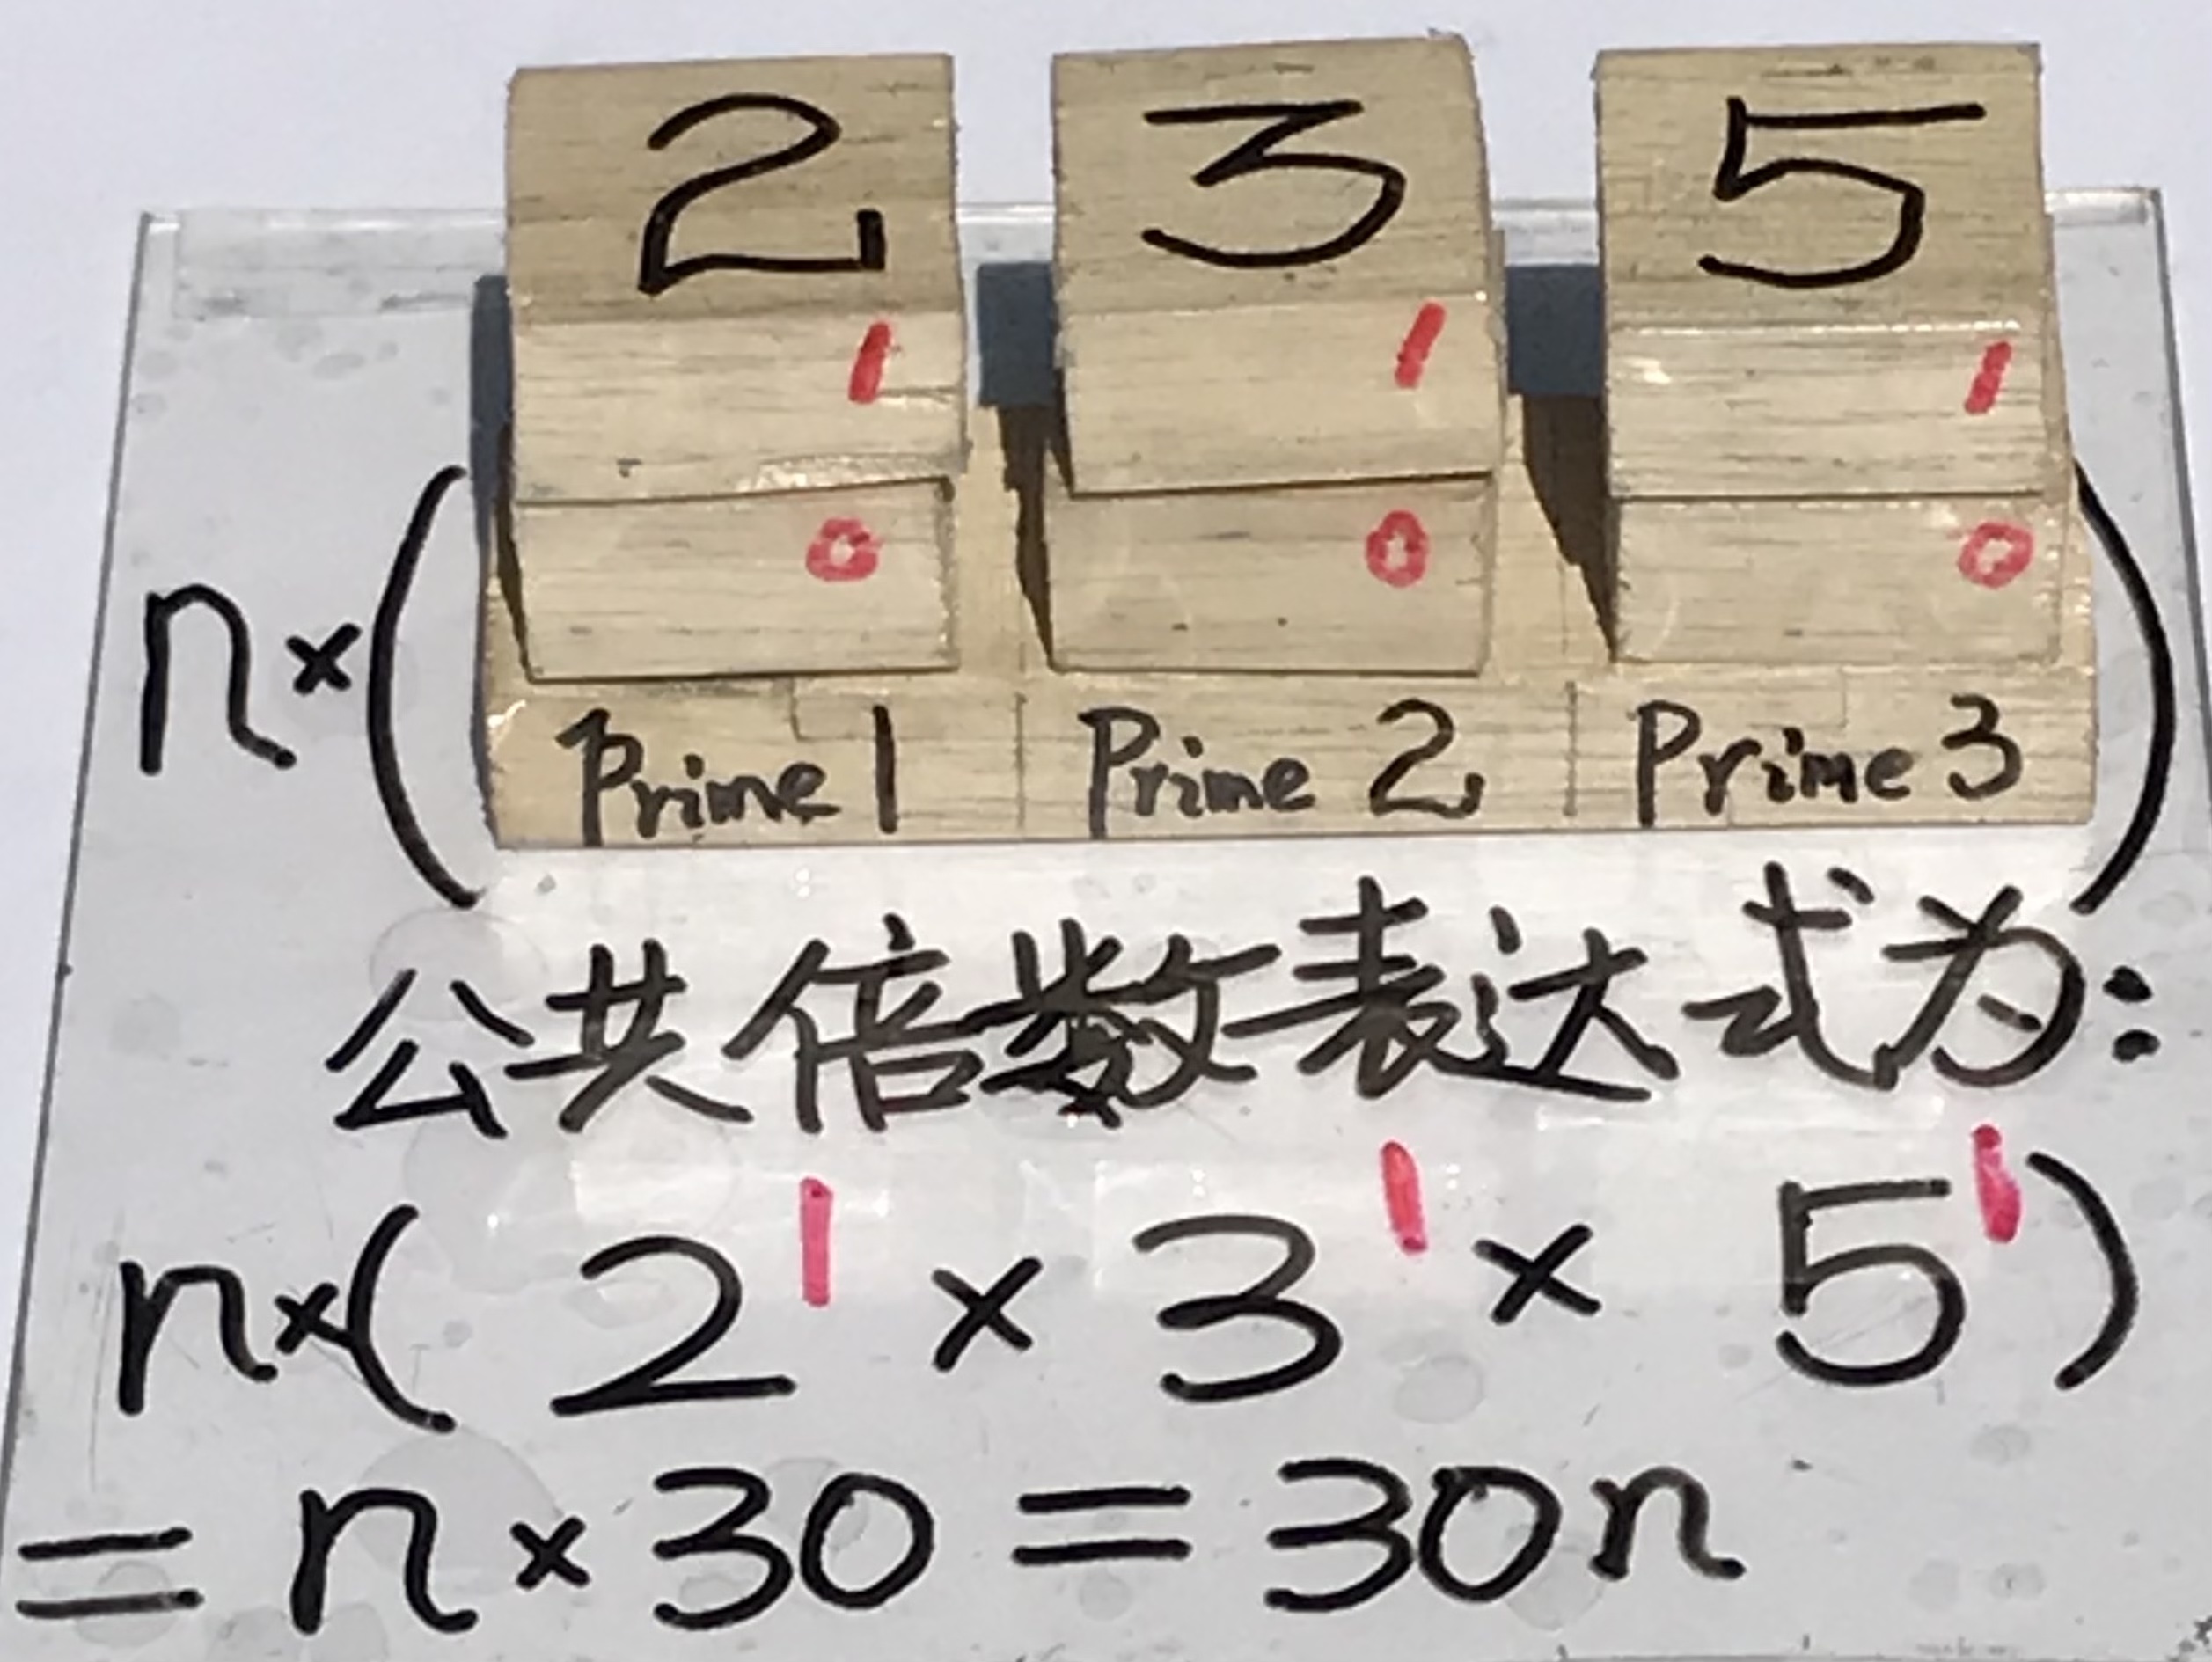 2 3 5
1 1 1
0 0 0
n×( )
Prime 1 Prime 2 Prime 3
公共倍数表达式为:
n×( 2¹ × 3¹ × 5¹ )
= n × 30 = 30n